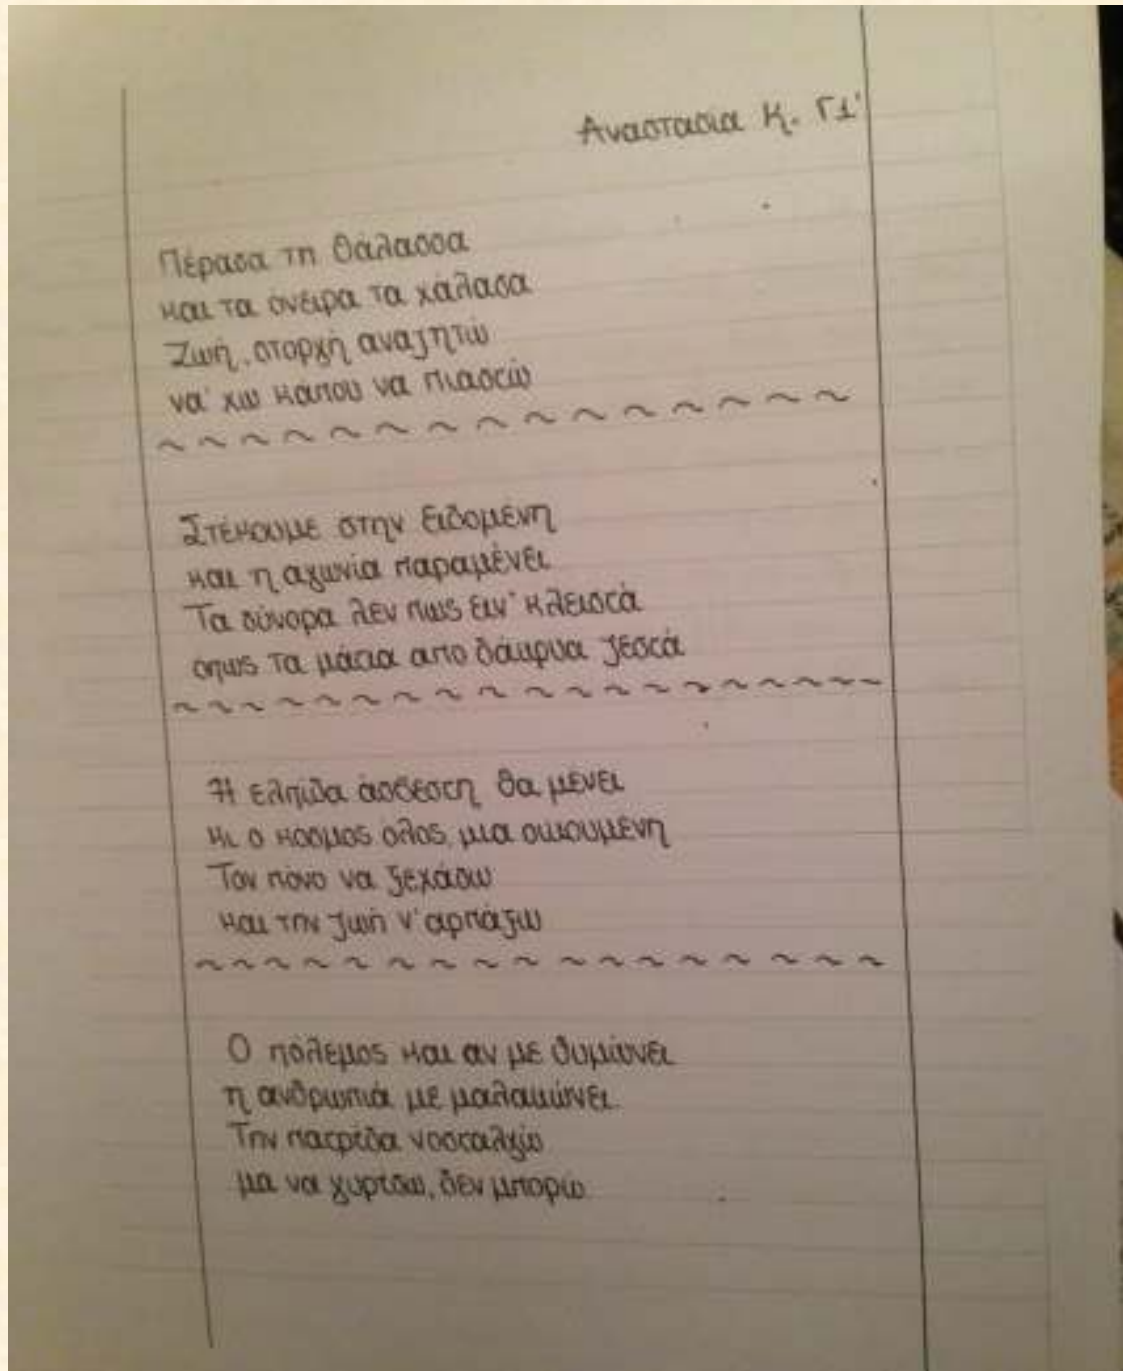 Αναστασία Κ. Γ1'
Πέρασα τη θάλασσα
και τα όνειρα τα χάλασα
Ζωή, στοργή αναζητώ
να' χω κάπου να πιαστώ
Στέκουμε στην Ειδομένη
και η αγωνία παραμένει
Τα σύνορα λεν πως ειν' κλειστά
οπως τα μάτια απο δάκρυα ζεστά
Η ελπίδα άσβεστη θα μένει
κι ο κοσμος ολος μια οικουμένη
Τον πόνο να ξεχάσω
και την ζωή ν' αρπάξω
Ο πόλεμος και αν με θυμώνει
η ανθρωπιά με μαλακώνει
Την πατρίδα νοσταλγώ
μα να γυρίσω, δεν μπορώ